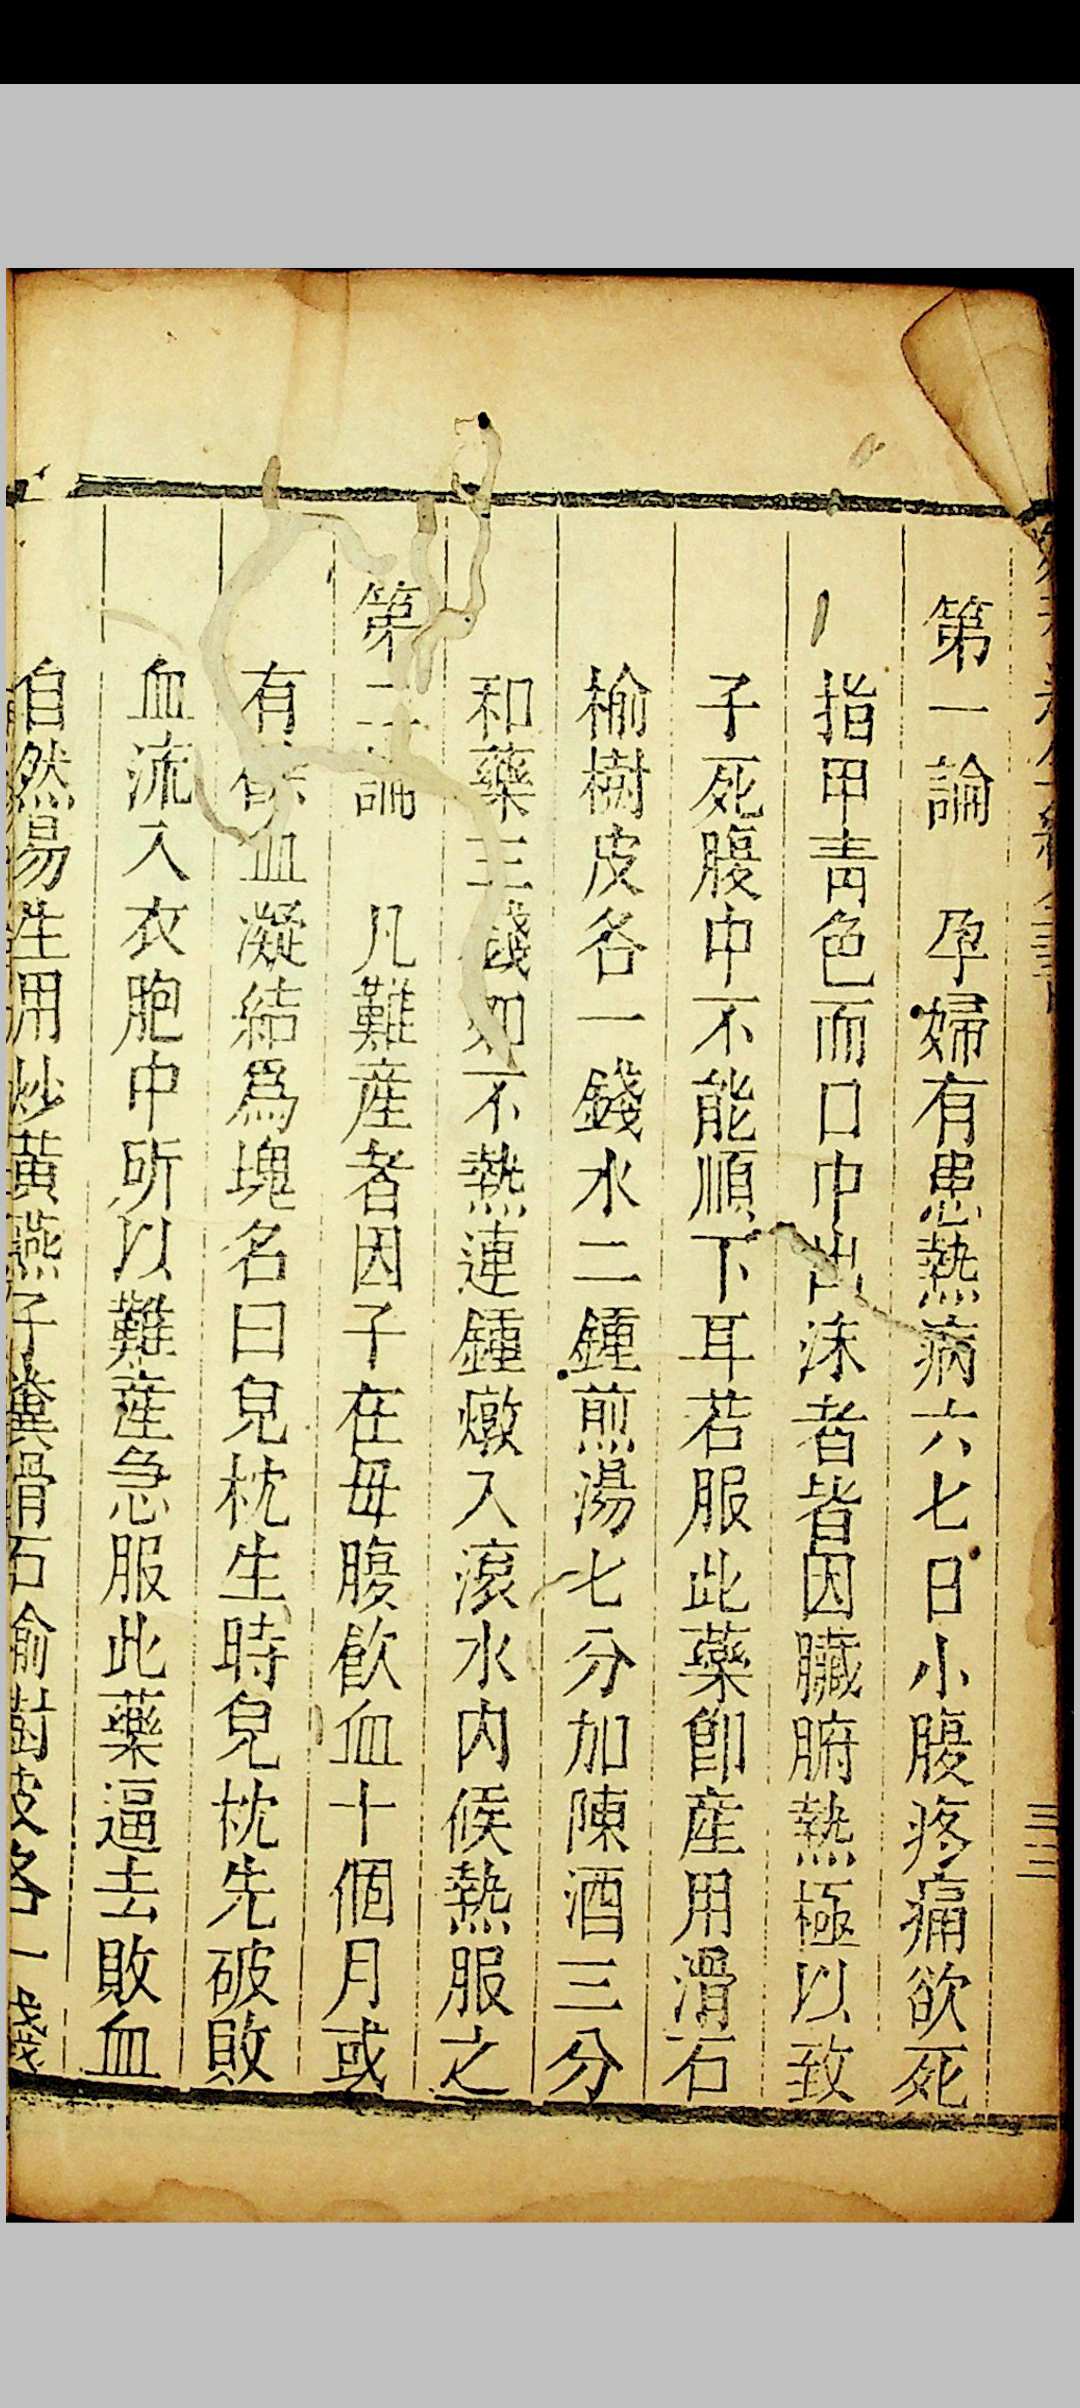 第一論　孕婦有患熱病六七日小腹疼痛欲死
指甲青色而口中出沫者皆因臟腑熱極以致
子死腹中不能順下耳若服此藥卽産用滑石
榆樹皮各一錢水二鍾煎湯七分加陳酒三分
和藥三錢如不熱連鍾燉入滾水內候熱服之
第二論　凡難産者因子在母腹飲血十個月或
有餘血凝結爲塊名曰兒枕生時兒枕先破敗
血流入衣胞中所以難産急服此藥逼去敗血
自然易生用炒黃燕子糞滑石榆樹皮各一錢
三三